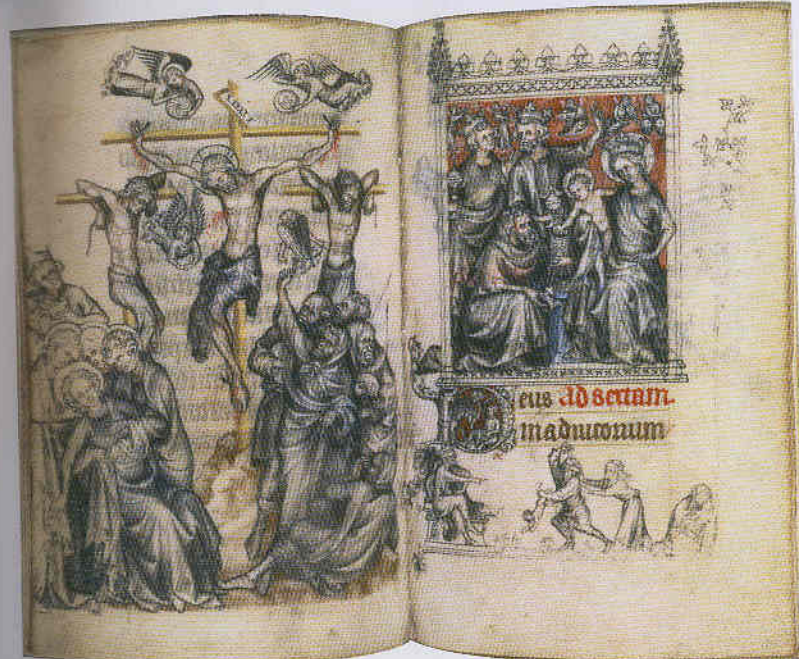 Deus Ad sextam.
in adiutorium